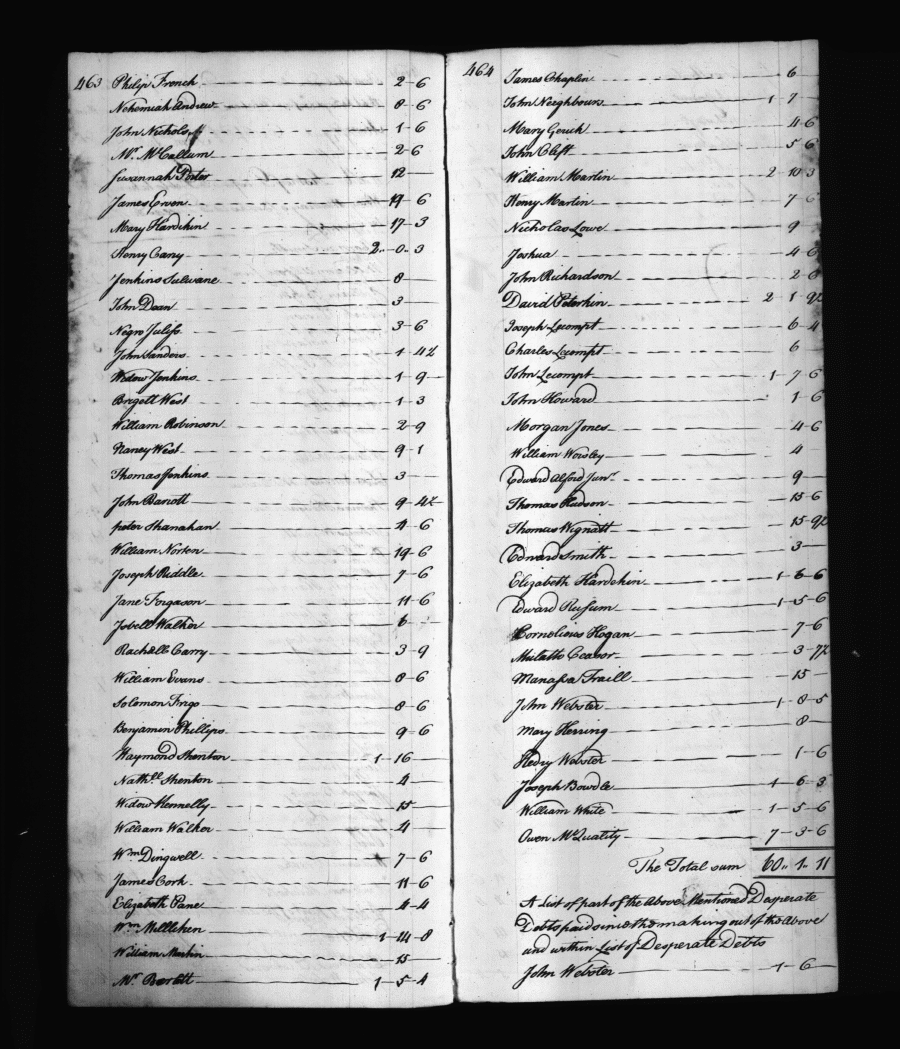 463
Philip French 2-6
Nehemiah Andrew 8-6
John Nichols 1-6
Mr. McCallum 2-6
Susannah Porter 12
James Ewen -6
Mary Hardikin 17-3
Henry Carry 2..-0-3
Jenkins Sulivane 8
John Dean 3
Negro Juliss 3-6
John Sanders 1-4½
Widow Jenkins 1-9
Brigett West 1-3
William Robinson 2-9
Nancy West 9-1
Thomas Jenkins 3
John Barrott 9-4½
peter Shanahan 4-6
William Norton 19-6
Joseph Riddle 7-6
Jane Forgason 11-6
Jobell Walker 6
Rachell Carry 3-9
William Evans 8-6
Solomon Frigo 8-6
Benjamin Phillips 9-6
Raymond Shenton 1-16
Nathll Shenton 4
Widow Kennelly 15
William Walker 4
Wm Dingwell 7-6
James Cork 11-6
Elizabeth Pane 4-4
Wm Milliken 1-14-8
William Martin 15
Mr. Barott 1-5-4
464
James Chaplin 6
John Neighbours 1-7
Mary Gouch 4-6
John Clift 5-6
William Martin 2-10-3
Henry Martin 7-6
Nicholas Lowe 9
Joshua 4-6
John Richardson 2-6
David Peterkin 2-1-9½
Joseph Lecompt 6-4
Charles Lecompt 6
John Lecompt 1-7-6
John Howard 1-6
Morgan Jones 4-6
William Wordley 4
Edward Alford Junr. 9
Thomas Hudson 15-6
Thomas Wignatt 15-9½
Edward Smith 3
Elizabeth Hardekin 1-6-6
Edward Rusum 1-5-6
Cornelious Hogan 7-6
Mulatto Ceasor 3-7½
Manassa Traill 15
John Webster 1-8-5
Mary Herring 8
Hedry Webster 1-6
Joseph Bowdle 1-6-3
William White 1-5-6
Owen McQuality 7-3-6
The Total sum 60..1..11
A List of part of the Above Mentioned Desperate
Debts paid since the making out of the Above
and within List of Desperate Debts
John Webster 1-6